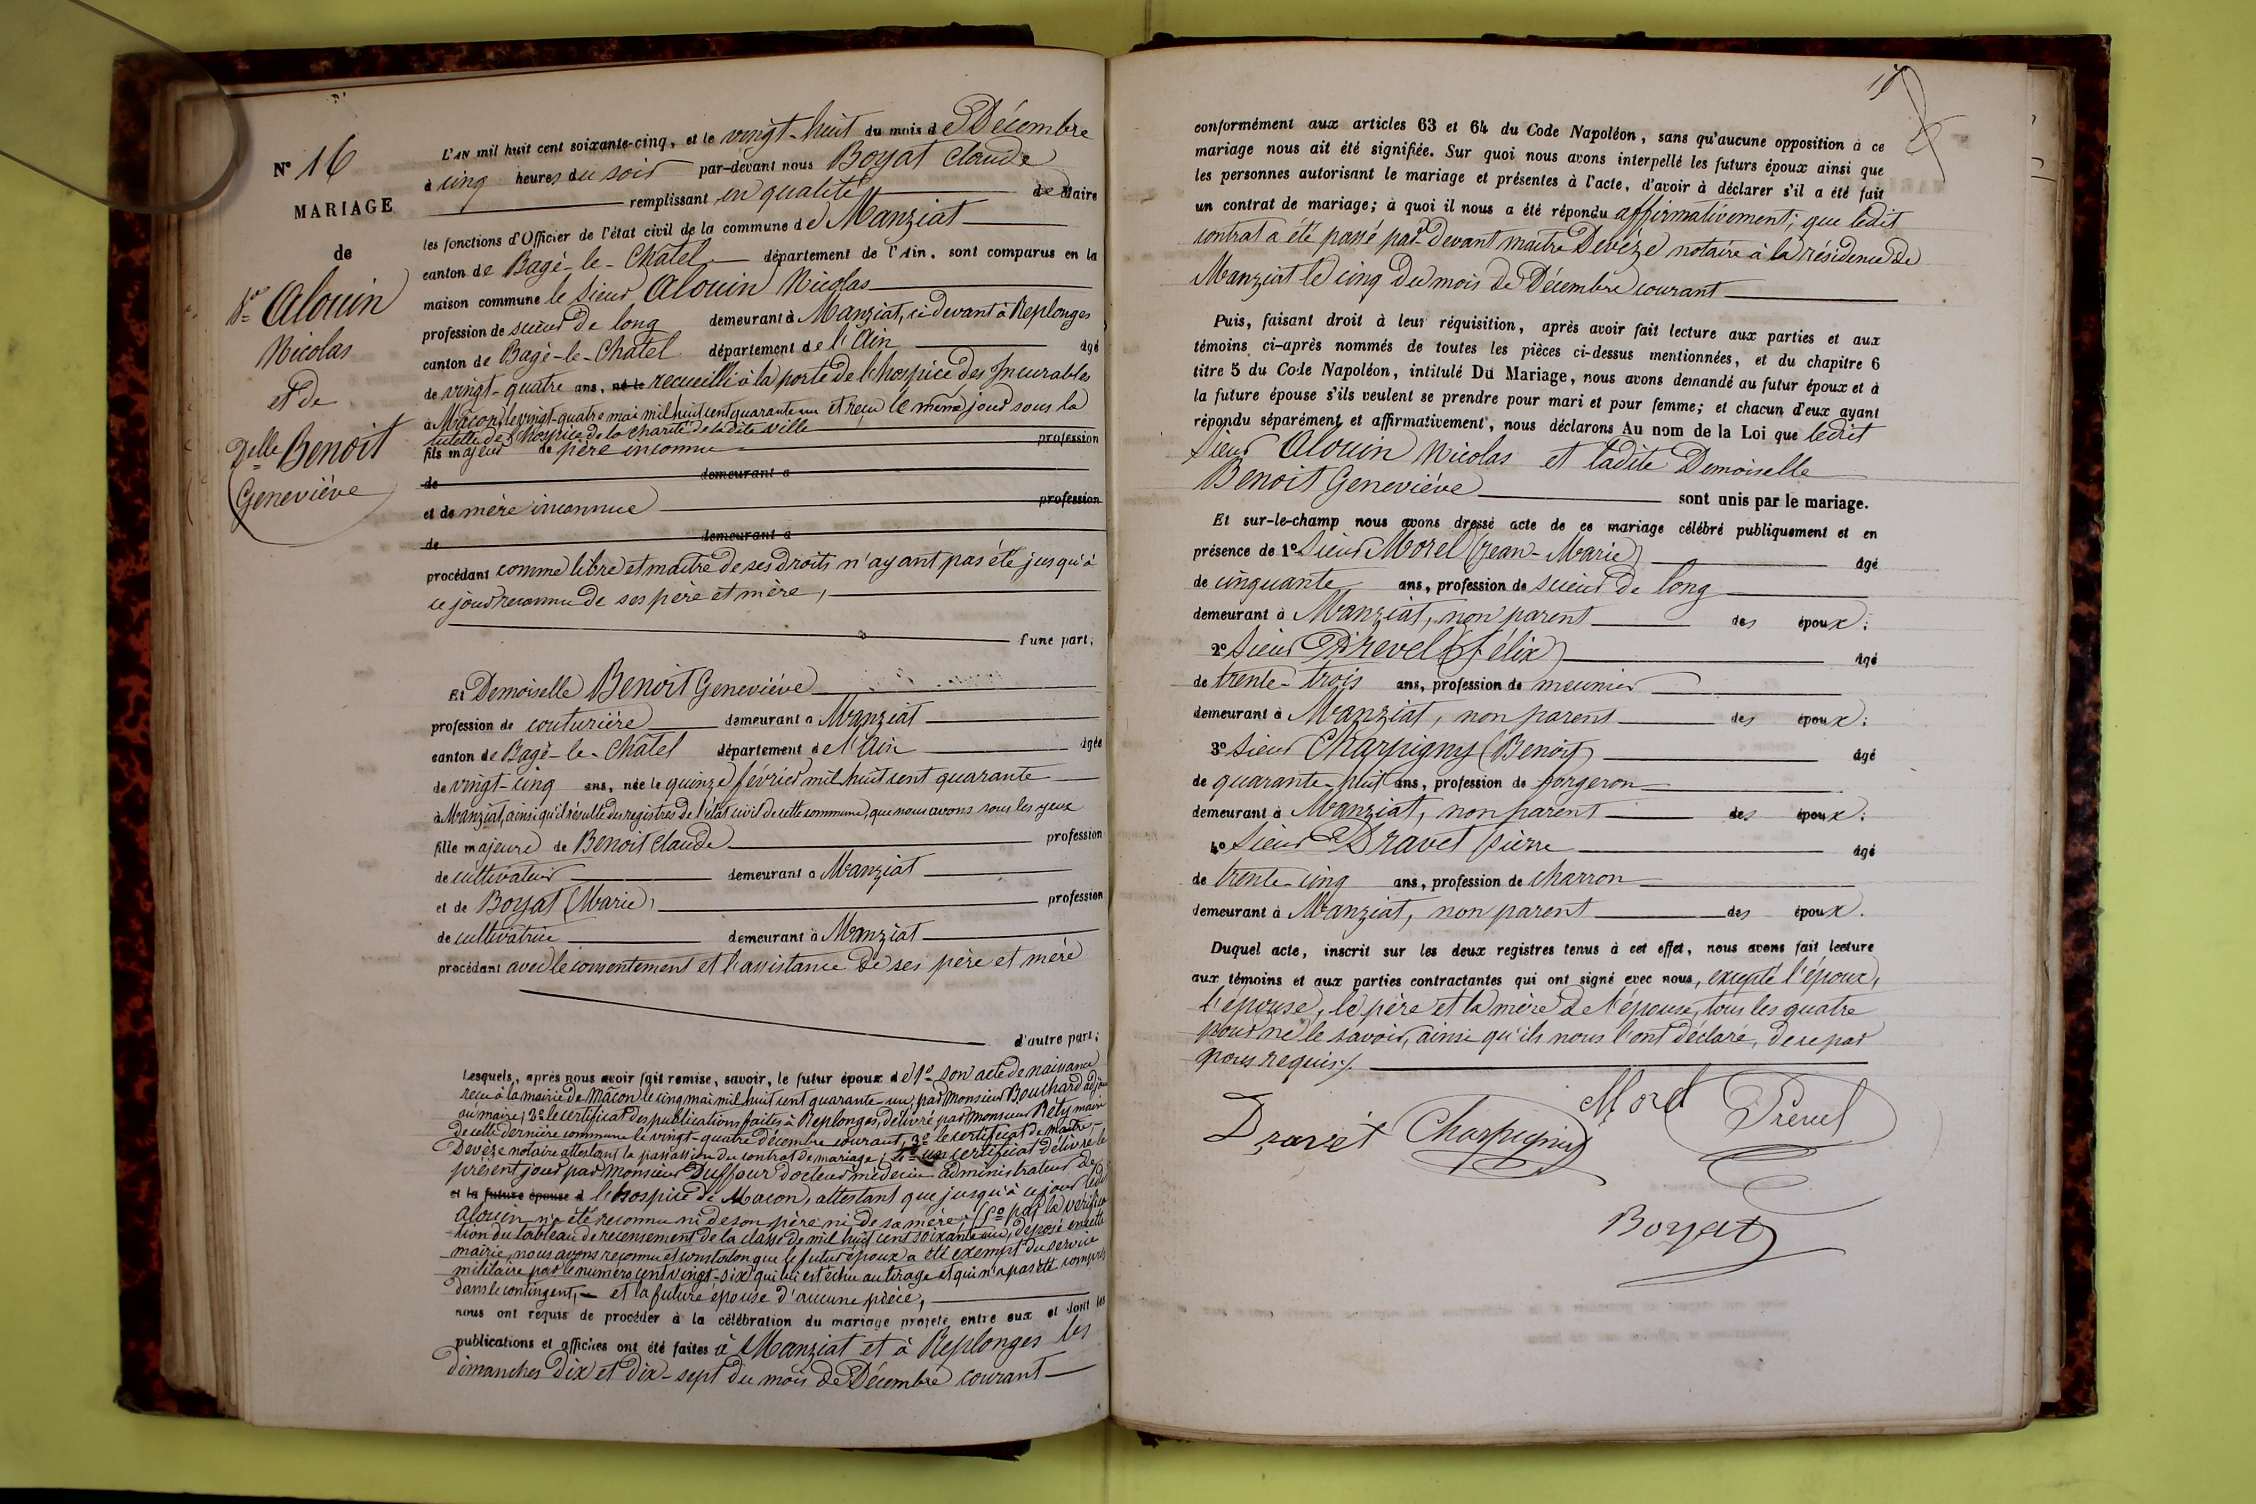 N° 16
MARIAGE
de
Sr Alouin
Nicolas
et de
Delle Benoit
Geneviève
L'AN mil huit cent soixante-cinq, et le vingt-huit du mois de Décembre
à cinq heures du soir par-devant nous Boyat Claude
remplissant en qualité de Maire
les fonctions d'Officier de l'état civil de la commune de Manziat
canton de Bagé-le-Châtel département de l'Ain, sont comparus en la
maison commune le sieur Alouin Nicolas
profession de scieur de long demeurant à Manziat, ci devant à Replonges
canton de Bagé-le-Châtel département de l'Ain âgé
de vingt-quatre ans, né le recueilli à la porte de l'hospice des Incurables
à Macon, le vingt-quatre mai mil huit cent quarante un et reçu le même jour sous la
tutelle de l'hospice de la charité de la dite ville
fils majeur de père inconnu profession
de demeurant à
et de mère inconnue profession
de demeurant à
procédant comme libre et maître de ses droits n'ayant pas été jusqu'à
ce jour reconnu de ses père et mère,
d'une part;
Et Demoiselle Benoit Geneviève
profession de couturière demeurant à Manziat
canton de Bagé-le-Châtel département de l'Ain âgée
de vingt-cinq ans, née le quinze février mil huit cent quarante
à Manziat, ainsi qu'il résulte des registres de l'état civil de cette commune, que nous avons sous les yeux
fille majeure de Benoit Claude profession
de cultivateur demeurant à Manziat
et de Boyat (Marie) profession
de cultivatrice demeurant à Manziat
procédant avec le consentement et l'assistance de ses père et mère
d'autre part;
Lesquels, après nous avoir fait remise, savoir, le futur époux de 1° son acte de naissance
reçu à la mairie de Mâcon le cinq mai mil huit cent quarante-un, par Monsieur Bouchard adjoint
au maire; 2° le certificat des publications faites à Replonges, délivré par Monsieur Réty maire
de cette dernière commune le vingt-quatre décembre courant; 3° le certificat de maître
Devèze notaire attestant la passation du contrat de mariage; 4° un certificat délivré le
présent jour par Monsieur Duffour docteur médecin administrateur de
et la future épouse d l'hospice de Macon, attestant que jusqu'à ce jour ledit
Alouin n'a été reconnu ni de son père ni de sa mère; 5° par la vérifica
tion du tableau de recensement de la classe de mil huit cent soixante un, déposé en cette
mairie, nous avons reconnu et constaté que le futur époux a été exempt du service
militaire par le numéro cent vingt-six qui lui est échu au tirage et qui n'a pas été compris
dans le contingent, et la future épouse d'aucune pièce,
nous ont requis de procéder à la célébration du mariage projeté entre eux et dont les
publications et affiches ont été faites à Manziat et à Replonges les
dimanches dix et dix-sept du mois de Décembre courant
conformément aux articles 63 et 64 du Code Napoléon, sans qu'aucune opposition à ce
mariage nous ait été signifiée. Sur quoi nous avons interpellé les futurs époux ainsi que
les personnes autorisant le mariage et présentes à l'acte, d'avoir à déclarer s'il a été fait
un contrat de mariage; à quoi il nous a été répondu affirmativement; que ledit
contrat a été passé par-devant maître Devèze notaire à la résidence de
Manziat le cinq du mois de Décembre courant
Puis, faisant droit à leur réquisition, après avoir fait lecture aux parties et aux
témoins ci-après nommés de toutes les pièces ci-dessus mentionnées, et du chapitre 6
titre 5 du Code Napoléon, intitulé Du Mariage, nous avons demandé au futur époux et à
la future épouse s'ils veulent se prendre pour mari et pour femme; et chacun d'eux ayant
répondu séparément et affirmativement, nous déclarons Au nom de la Loi que ledit
Sieur Alouin Nicolas et ladite Demoiselle
Benoit Geneviève sont unis par le mariage.
Et sur-le-champ nous avons dressé acte de ce mariage célébré publiquement et en
présence de 1° Sieur Morel (Jean-Marie) âgé
de cinquante ans, profession de scieur de long
demeurant à Manziat, non parent des époux;
2° Sieur Prevel (Félix) âgé
de trente-trois ans, profession de meunier
demeurant à Manziat, non parent des époux;
3° Sieur Charpigny (Benoit) âgé
de quarante-huit ans, profession de forgeron
demeurant à Manziat, non parent des époux;
4° Sieur Dravet Pierre âgé
de trente-cinq ans, profession de charron
demeurant à Manziat, non parent des époux.
Duquel acte, inscrit sur les deux registres tenus à cet effet, nous avons fait lecture
aux témoins et aux parties contractantes qui ont signé avec nous, excepté l'époux,
l'épouse, le père et la mère de l'épouse, tous les quatre
pour ne le savoir, ainsi qu'ils nous l'ont déclaré, de ce par
nous requis.
Morel Prevel
Dravet Charpigny
Boyat